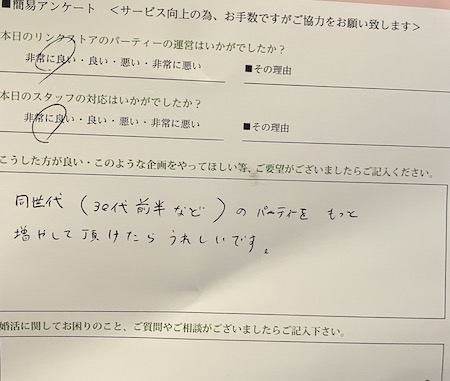 ■簡易アンケート ＜サービス向上の為、お手数ですがご協力をお願い致します＞
本日のリンクストアのパーティーの運営はいかがでしたか？
非常に良い・良い・悪い・非常に悪い ■その理由
本日のスタッフの対応はいかがでしたか？
非常に良い・良い・悪い・非常に悪い ■その理由
こうした方が良い・このような企画をやってほしい等、ご要望がございましたらご記入ください。
同世代（30代前半など）のパーティーを もっと
増やして頂けたら うれしいです。
婚活に関してお困りのこと、ご質問やご相談がございましたらご記入下さい。